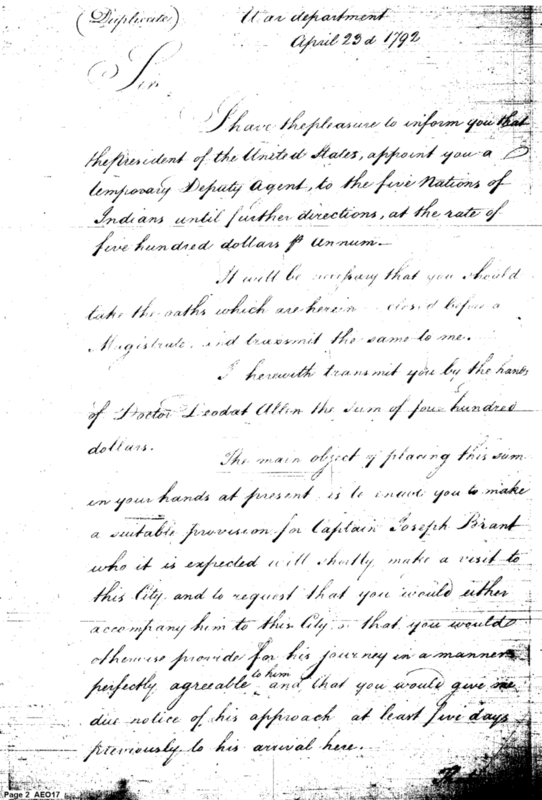 (Duplicate)
War department
April 23d 1792
Sir
I have the pleasure to inform you that
the President of the United States, appoint you a
temporary Deputy Agent, to the five Nations of
Indians until further directions, at the rate of
five hundred dollars ⅌ Annum.
It will be necessary that you should
take the oaths which are herein closed before a
Magistrate, and transmit the same to me.
I herewith transmit you by the hands
of Doctor Deodat Allen the sum of four hundred
dollars.
The main object of placing this sum
in your hands at present is to enable you to make
a suitable provision for Captain Joseph Brant
who it is expected will shortly make a visit to
this City and to request that you would either
accompany him to this City, or that you would
otherwise provide for his journey in a manner
perfectly agreeable to him and that you would give me
due notice of his approach at least five days
previously to his arrival here.
Page 2 AEO17